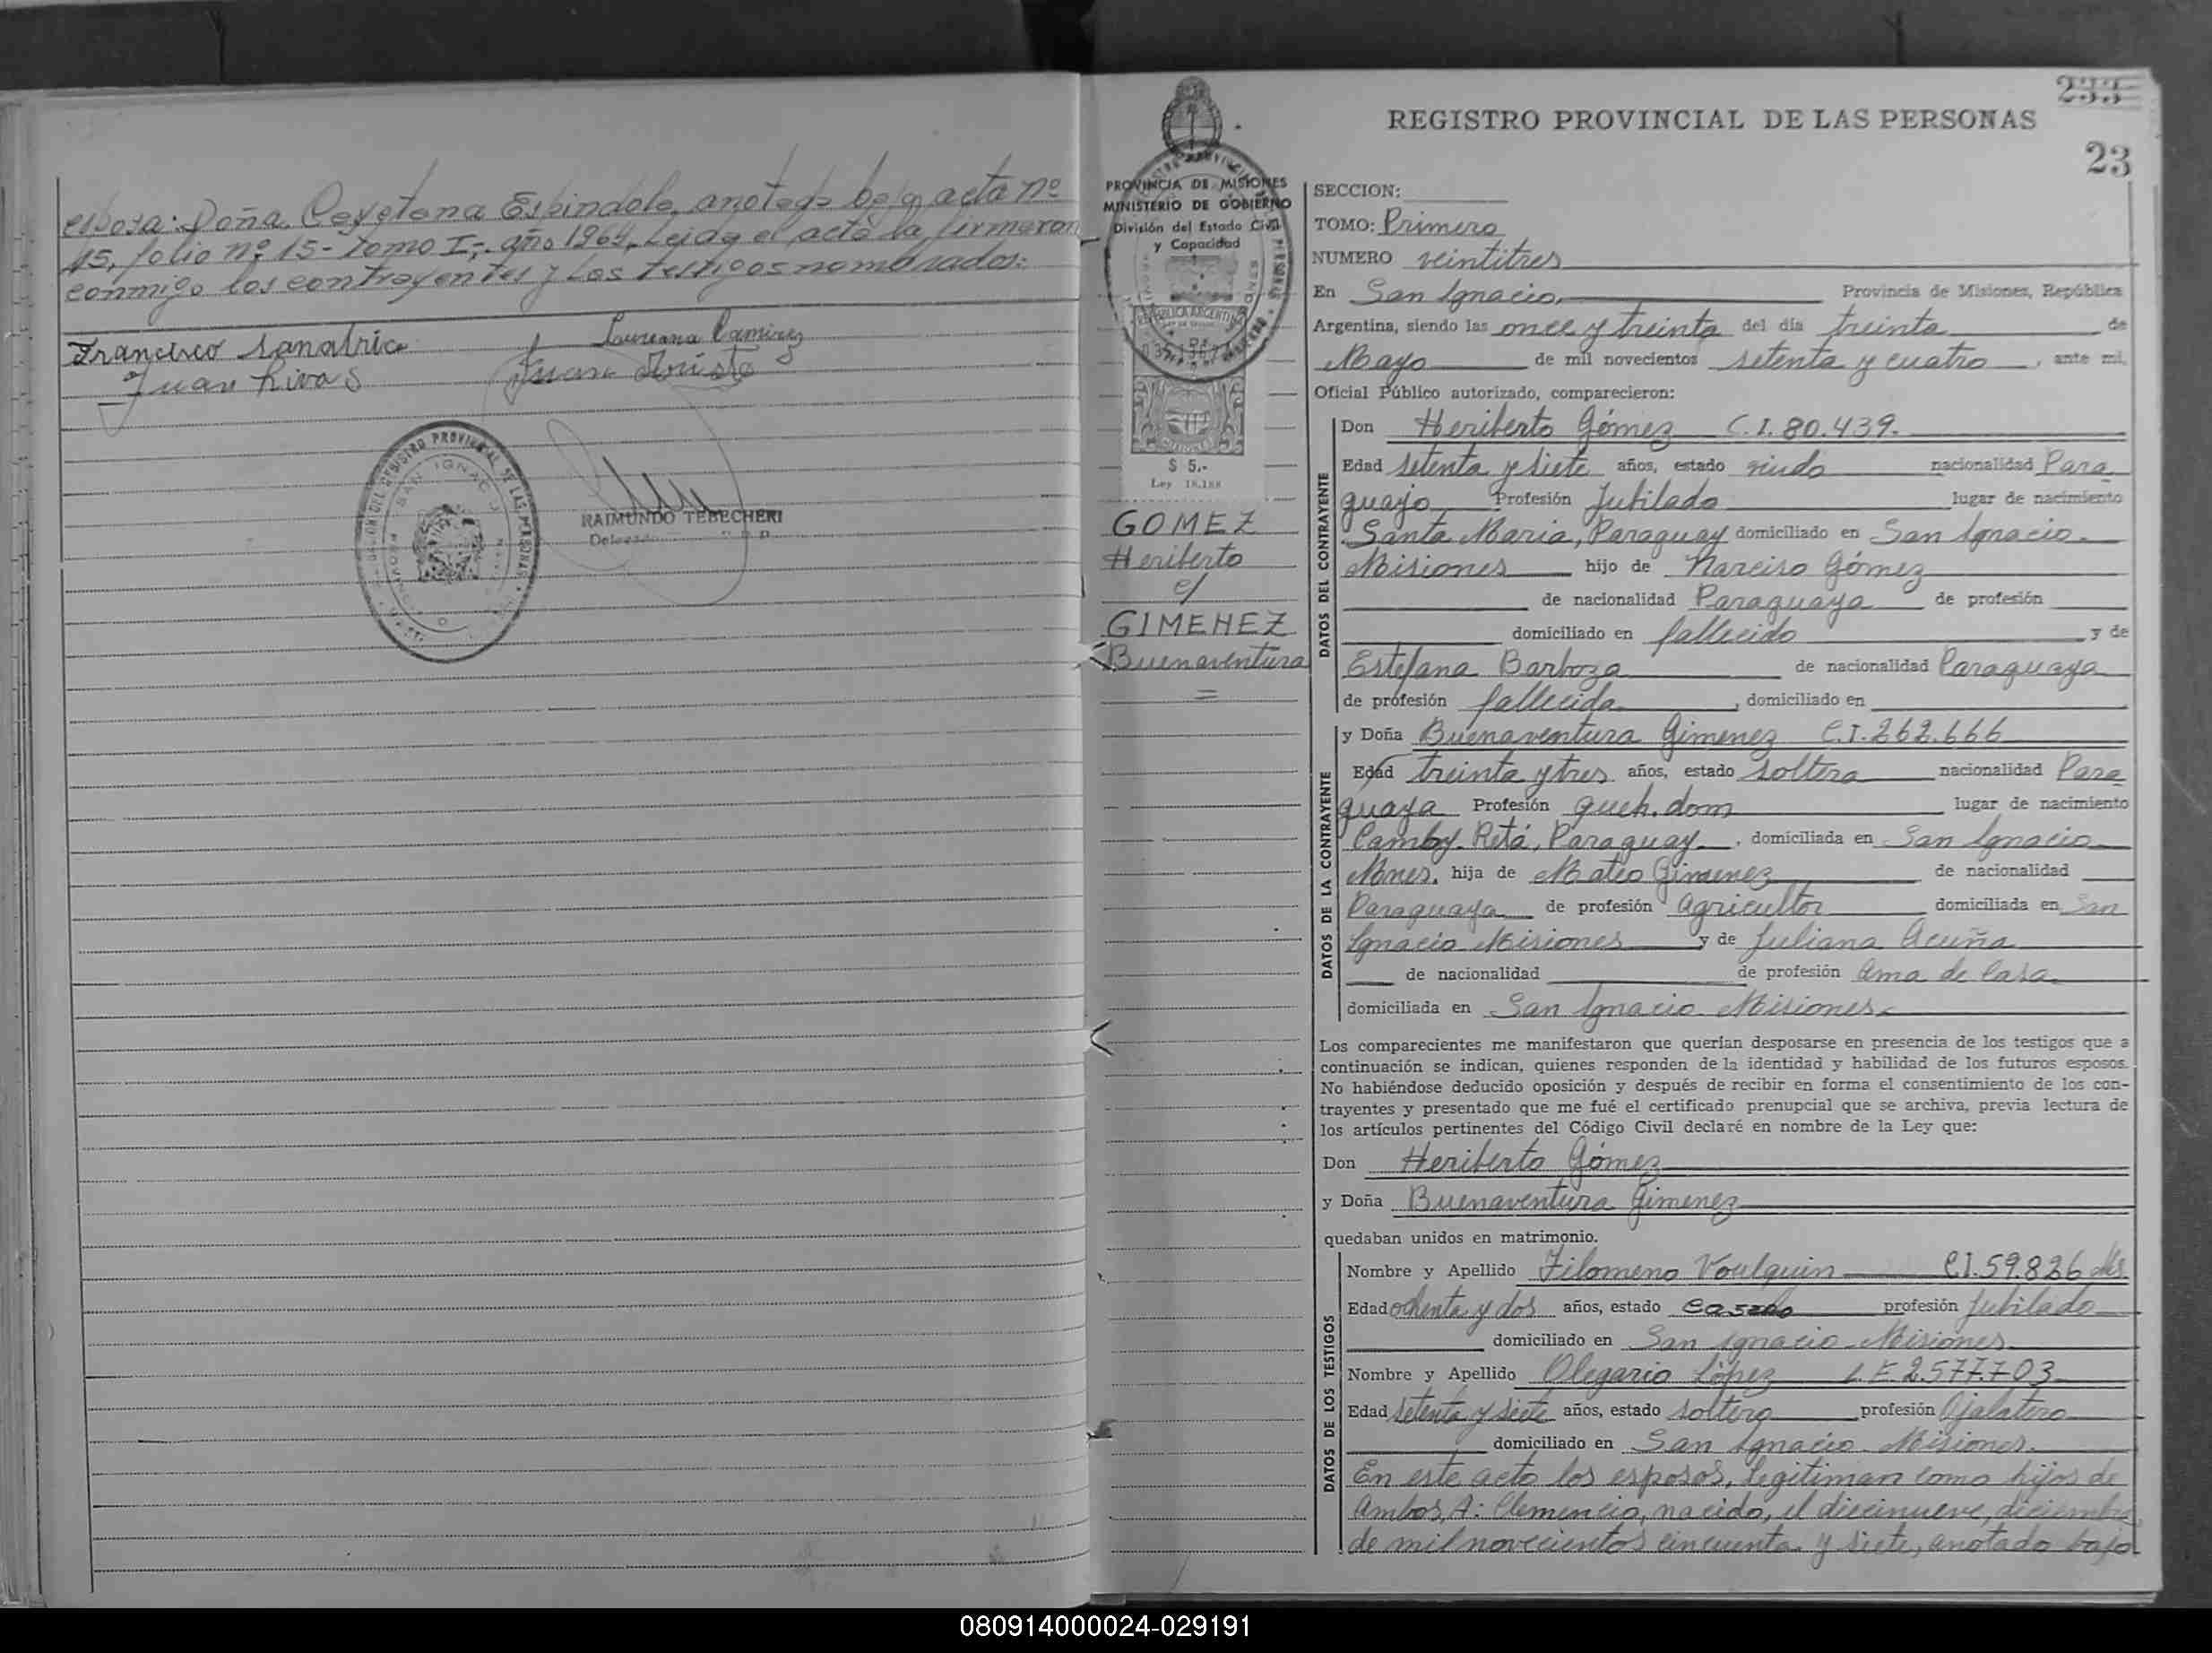 esposa: Doña Cayetana Espindola, anotada bajo acta nº
15, folio nº 15 - Tomo I,- año 1964, Leida el acta la firmaron
conmigo los contrayentes y los testigos nombrados:
Francisco Sanabria
Laureana Ramirez
Juan Rivas
Juan
RAIMUNDO TEBECHERI
PROVINCIA DE MISIONES
MINISTERIO DE GOBIERNO
División del Estado Civil
y Capacidad
REPUBLICA ARGENTINA
$ 5.-
Ley 18.188
GOMEZ
Heriberto
c/
GIMENEZ
Buenaventura
=
233
REGISTRO PROVINCIAL DE LAS PERSONAS
23
SECCION:
TOMO: Primero
NUMERO veintitres
En San Ignacio, Provincia de Misiones, República
Argentina, siendo las once y treinta del día treinta de
Mayo de mil novecientos setenta y cuatro, ante mi,
Oficial Público autorizado, comparecieron:
DATOS DEL CONTRAYENTE
Don Heriberto Gómez C.I. 80.439.
Edad setenta y siete años, estado viudo nacionalidad Para
guayo Profesión Jubilado lugar de nacimiento
Santa Maria, Paraguay domiciliado en San Ignacio.
Misiones hijo de Narciso Gómez
de nacionalidad Paraguaya de profesión
domiciliado en fallecido y de
Estefana Barboza de nacionalidad Paraguaya
de profesión fallecida, domiciliado en
DATOS DE LA CONTRAYENTE
y Doña Buenaventura Gimenez C.I. 262.666
Edad treinta y tres años, estado soltera nacionalidad Para
guaya Profesión queh. dom lugar de nacimiento
Camby-Retá, Paraguay, domiciliada en San Ignacio
Mnes. hija de Mateo Gimenez de nacionalidad
Paraguaya de profesión agricultor domiciliada en San
Ignacio Misiones y de Juliana Acuña
de nacionalidad de profesión ama de casa
domiciliada en San Ignacio Misiones.
Los comparecientes me manifestaron que querían desposarse en presencia de los testigos que a
continuación se indican, quienes responden de la identidad y habilidad de los futuros esposos.
No habiéndose deducido oposición y después de recibir en forma el consentimiento de los con-
trayentes y presentado que me fué el certificado prenupcial que se archiva, previa lectura de
los artículos pertinentes del Código Civil declaré en nombre de la Ley que:
Don Heriberto Gómez
y Doña Buenaventura Gimenez
quedaban unidos en matrimonio.
DATOS DE LOS TESTIGOS
Nombre y Apellido Filomeno Voulquin C.I. 59.826 Ms
Edad ochenta y dos años, estado casado profesión jubilado
domiciliado en San Ignacio Misiones
Nombre y Apellido Olegario López L.E. 2.577.703
Edad setenta y siete años, estado soltero profesión Ojalatero
domiciliado en San Ignacio. Misiones.
En este acto los esposos, Legitiman como hijos de
ambos, A: Clemencio, nacido, el diecinueve, diciembre
de mil novecientos cincuenta y siete, anotado bajo
080914000024-029191